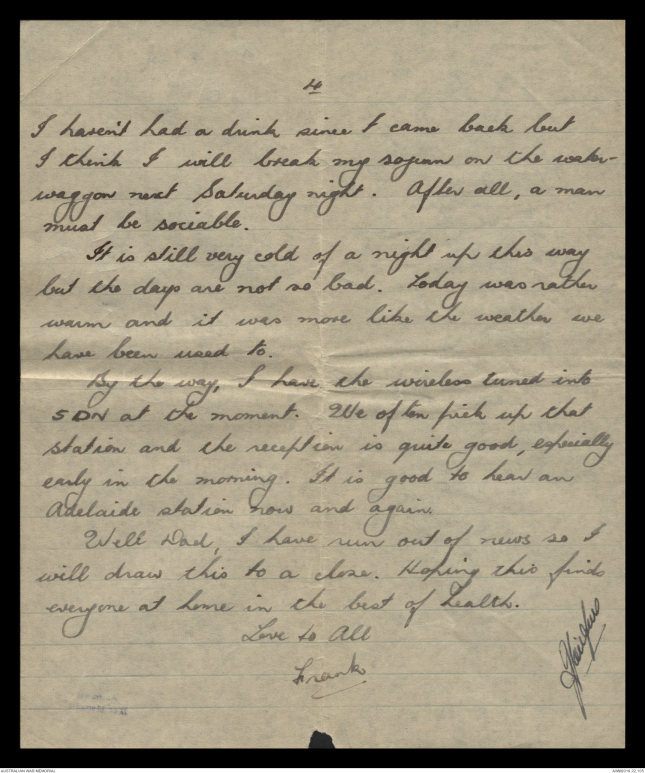 4
I haven't had a drink since I came back but
I think I will break my sojurn on the water-
waggon next Saturday night. After all, a man
must be sociable.
It is still very cold of a night up this way
but the days are not so bad. Today was rather
warm and it was more like the weather we
have been used to.
By the way, I have the wireless tuned into
5DN at the moment. We often pick up that
station and the reception is quite good, especially
early in the morning. It is good to hear an
Adelaide station now and again.
Well Dad, I have run out of news so I
will draw this to a close. Hoping this finds
everyone at home in the best of health.
Love to All
Frank
AUSTRALIAN WAR MEMORIAL